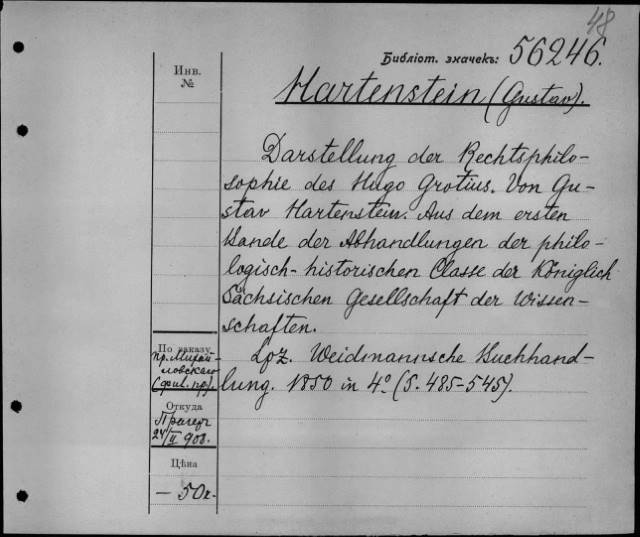 48
Библіот. значекъ: 56246.
Инв.
№
Hartenstein (Gustav).
Darstellung der Rechtsphilo-
sophie des Hugo Grotius. Von Gu-
stav Hartenstein. Aus dem ersten
Bande der Abhandlungen der philo-
logisch-historischen Classe der Königlich
Sächsischen Gesellschaft der Wissen-
schaften.
Lpz. Weidmannische Buchhand-
lung. 1850 in 4° (S. 485-545).
По заказу
пр. Михай-
ловскаго
Откуда
24/II 908.
Цѣна
— 50